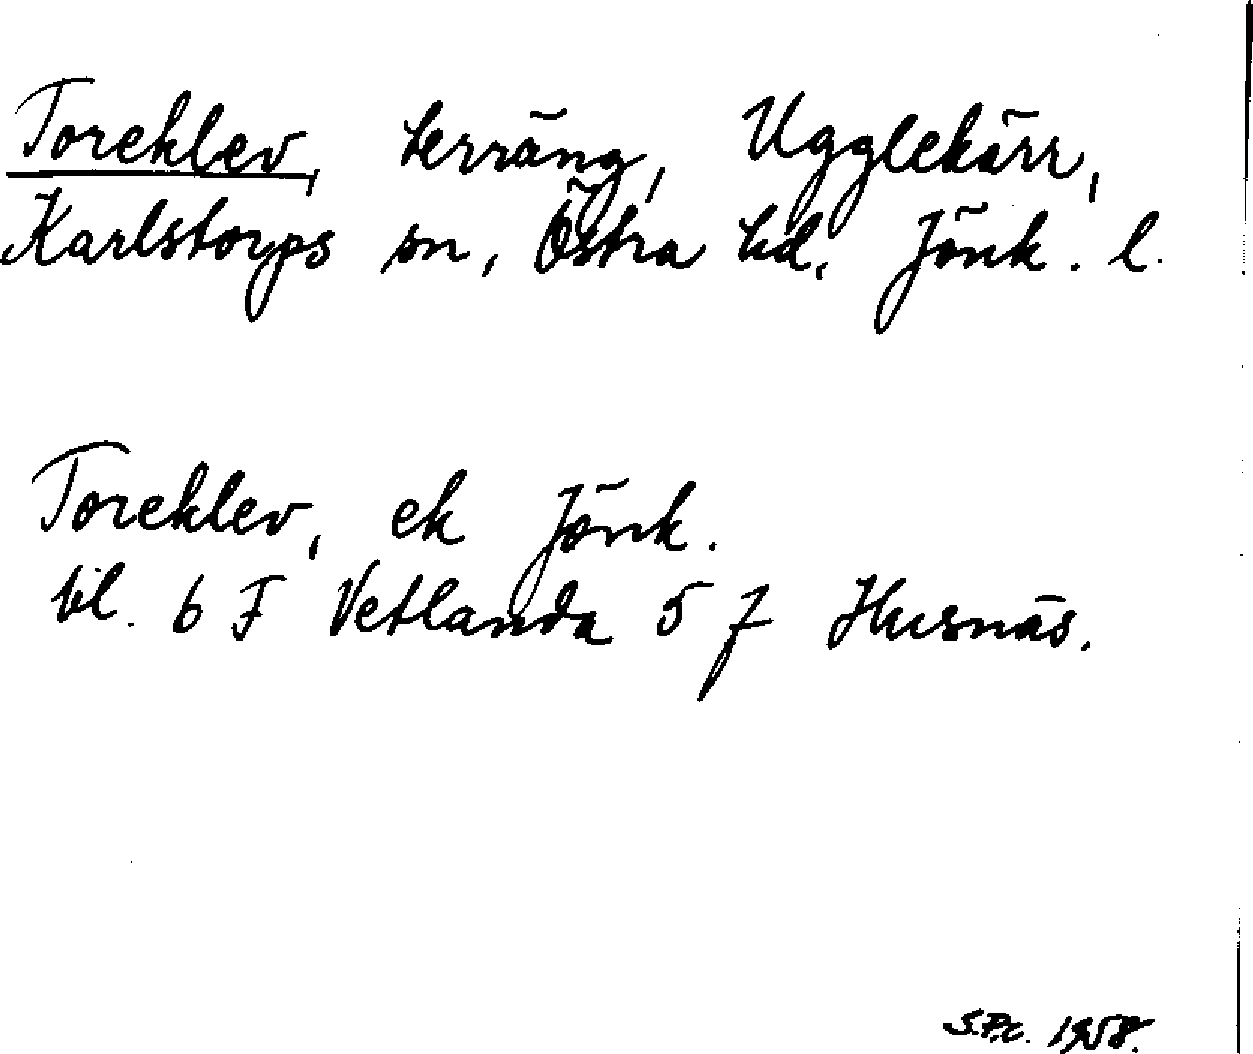 Toreklev, terräng, Ugglekärr,
Karlstorps sn, Östra hd, Jönk. l.
Toreklev, ek Jönk.
bl. 6 F Vetlanda 5 f Husnäs.
S.P.C. 1958.